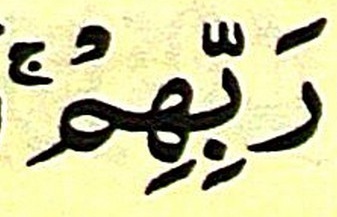 رَبِّهِمْ ۚ